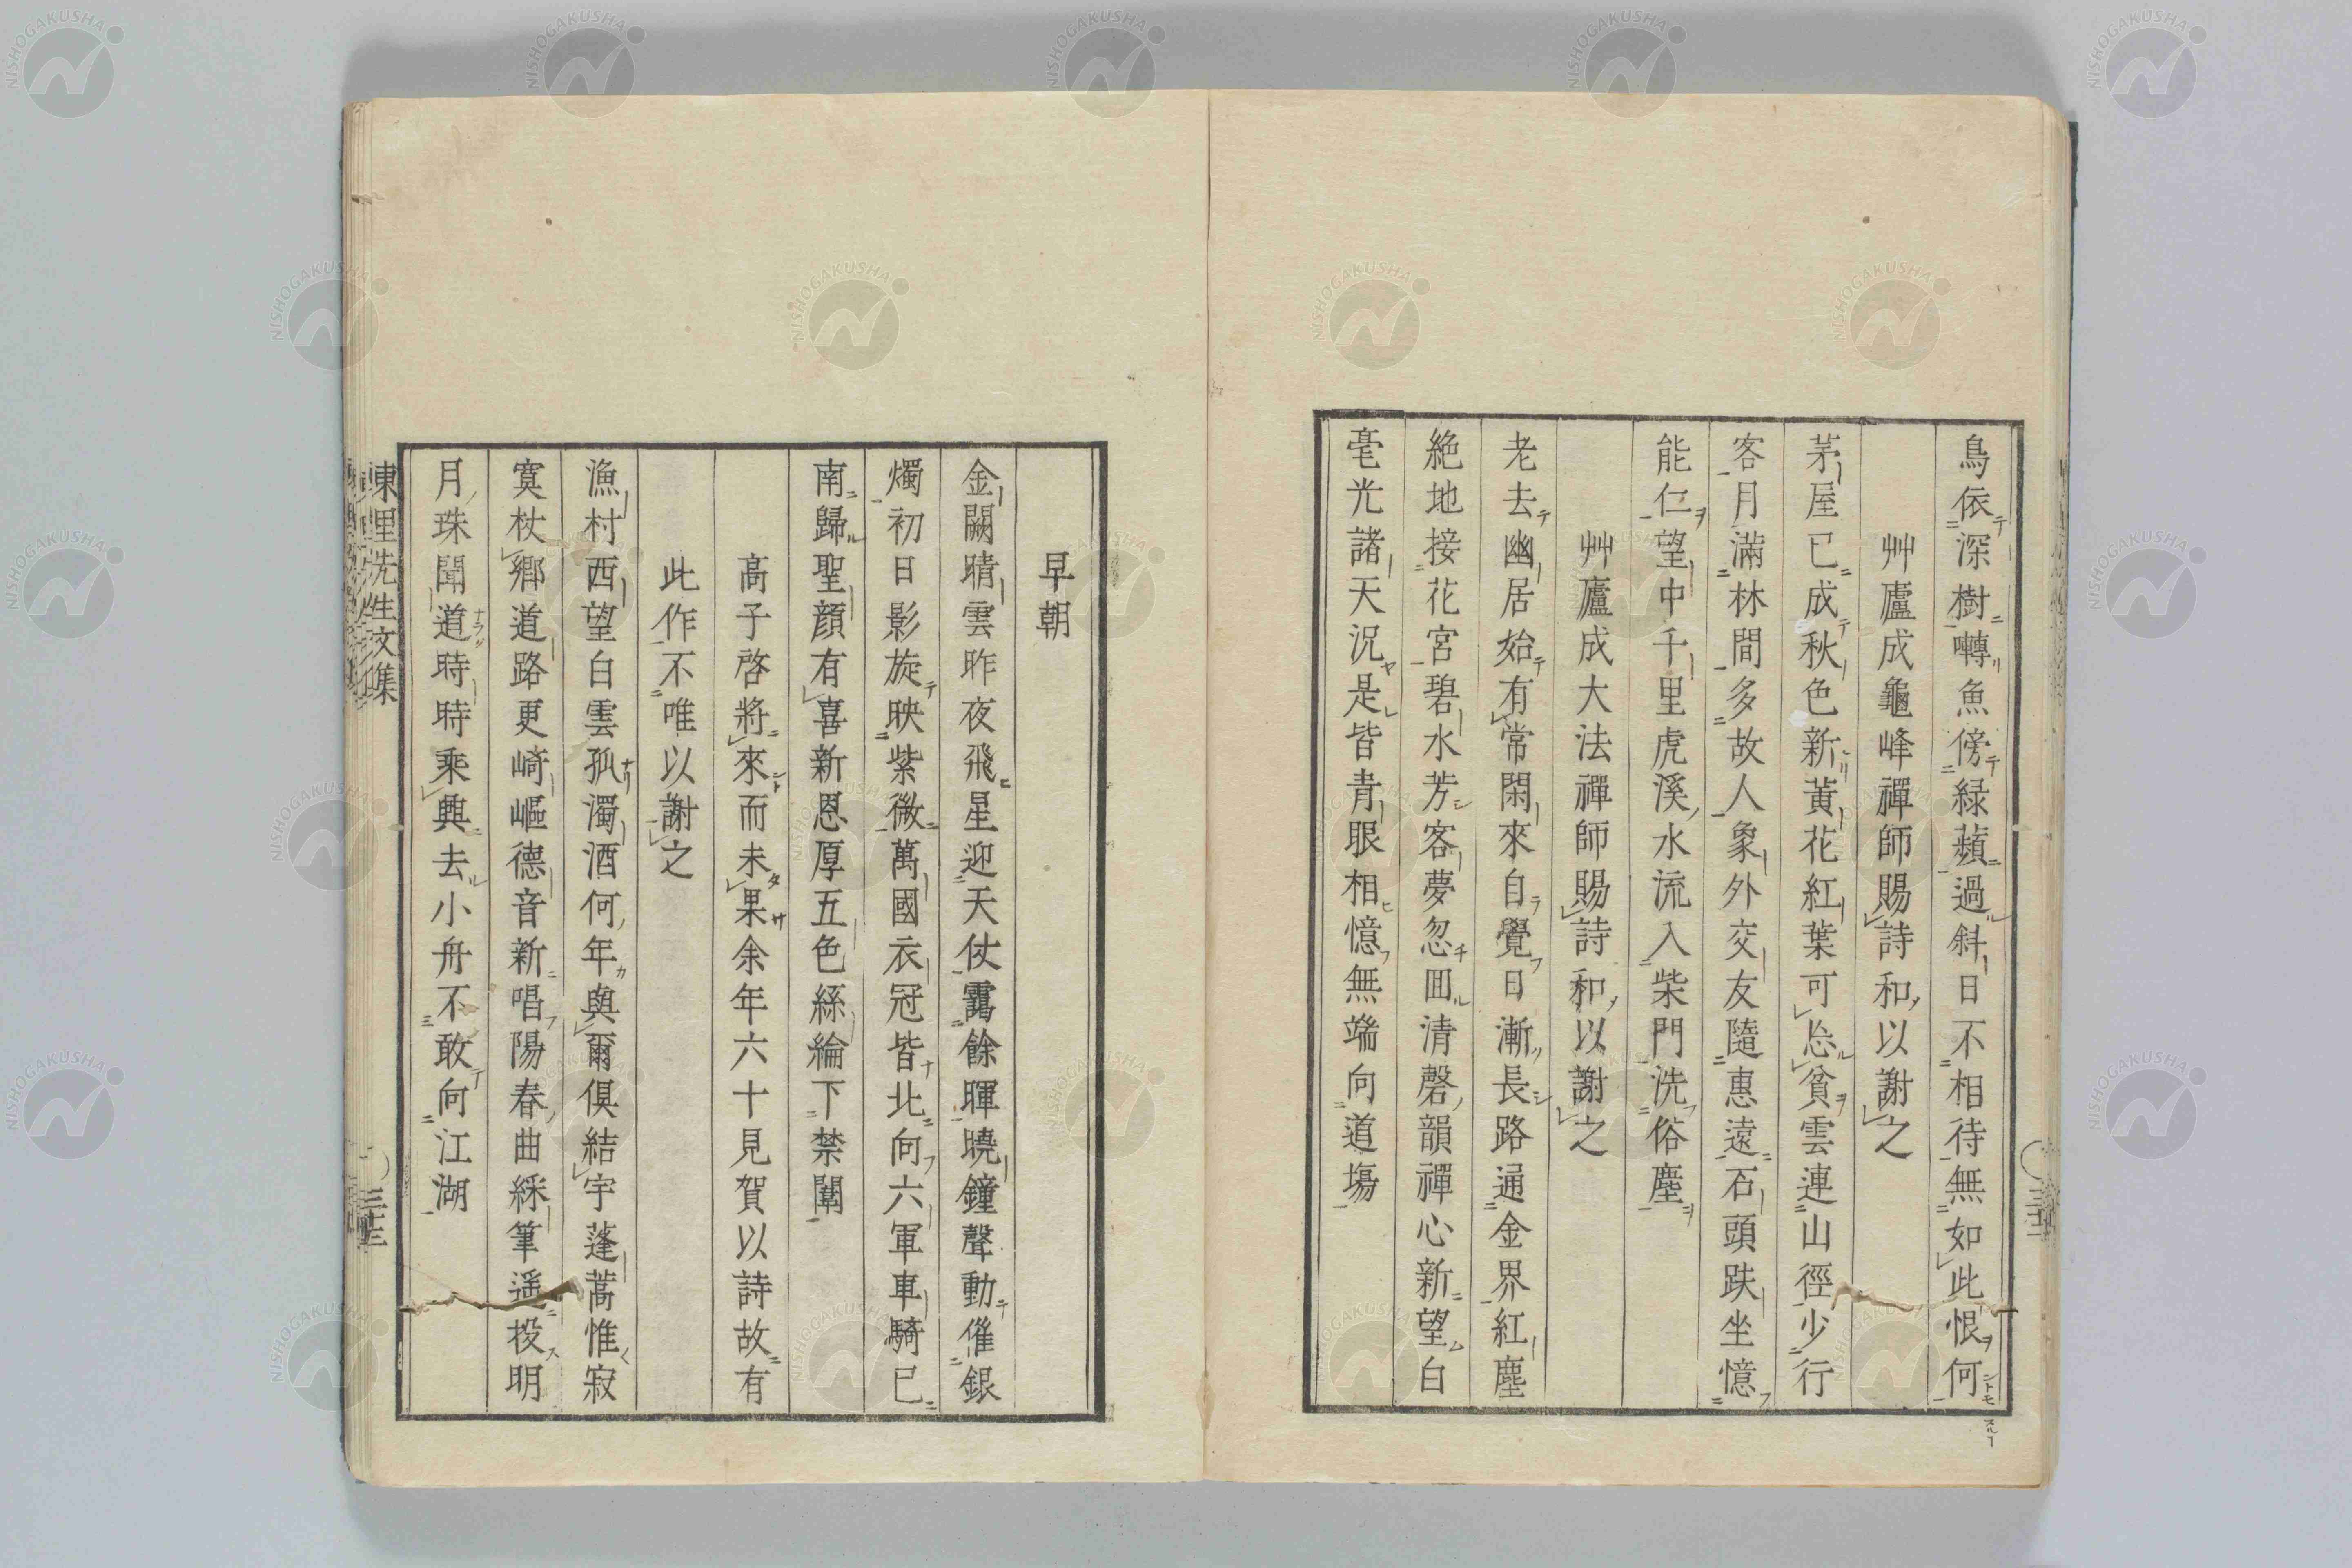 鳥依深樹囀魚傍緑蘋過斜日不相待無如此恨何
艸廬成龜峰禪師賜詩和以謝之
茅屋已成秋色新黃花紅葉可忩貧雲連山徑少行
客月滿林間多故人象外交友隨惠遠石頭趺坐憶
能仁望中千里虎溪水流入柴門洗俗塵
艸廬成大法禪師賜詩和以謝之
老去幽居始有常閑來自覺日漸長路通金界紅塵
絶地接花宮碧水芳客夢忽囬清磬韻禪心新望白
毫光諸天況是皆青眼相憶無端向道塲
早朝
金闕晴雲昨夜飛星迎天仗靄餘暉曉鐘聲動催銀
燭初日影旋映紫微萬國衣冠皆北向六軍車騎已
南歸聖顔有喜新恩厚五色絲綸下禁闈
高子啓將來而未果余年六十見賀以詩故有
此作不唯以謝之
漁村西望白雲孤濁酒何年與爾俱結宇蓬蒿惟寂
寞杖鄉道路更崎嶇德音新唱陽春曲綵筆遥投明
月珠聞道時時乘興去小舟不敢向江湖
東里先生文集
三十三
NISHOGAKUSHA